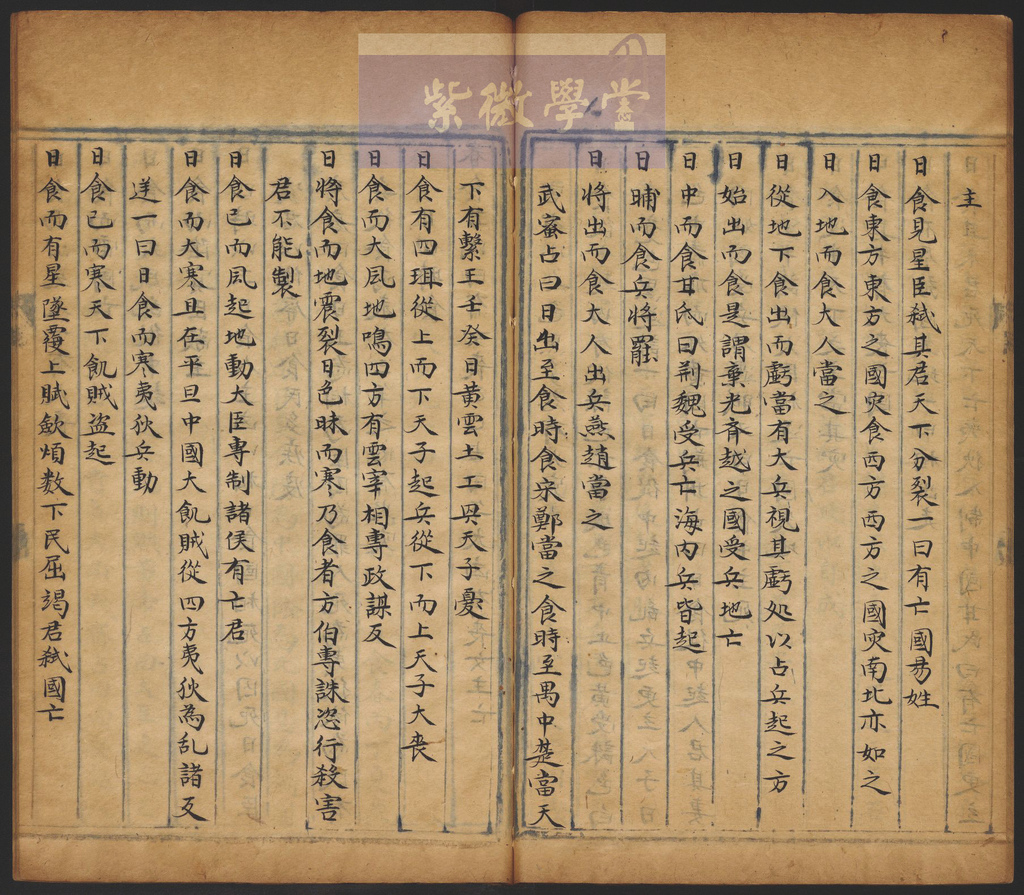 紫微學堂
主
日食見星臣弑其君天下分裂一曰有亡國易姓
日食東方東方之國灾食西方西方之國灾南北亦如之
日入地而食大人當之
日從地下食出而虧當有大兵視其虧处以占兵起之方
日始出而食是謂棄光斉越之國受兵地亡
日中而食甘氏曰荆魏受兵亡海内兵皆起
日晡而食兵將罷
日將出而食大人出兵燕趙當之
武宻占曰日出至食時食宋鄭當之食時至禺中楚當天
下有繫王壬癸日黄雲土工興天子憂
日食有四珥從上而下天子起兵從下而上天子大丧
日食而大風地鳴四方有雲宰相專政謀反
日將食而地震裂日色昧而寒乃食者方伯專誅恣行殺害
君不能製
日食已而風起地動大臣專制諸侯有亡君
日食而大寒且在平旦中國大飢賊從四方夷狄為乱諸反
送一曰日食而寒夷狄兵動
日食已而寒天下飢賊盗起
日食而有星墜覆上賦歛煩数下民屈竭君弑國亡